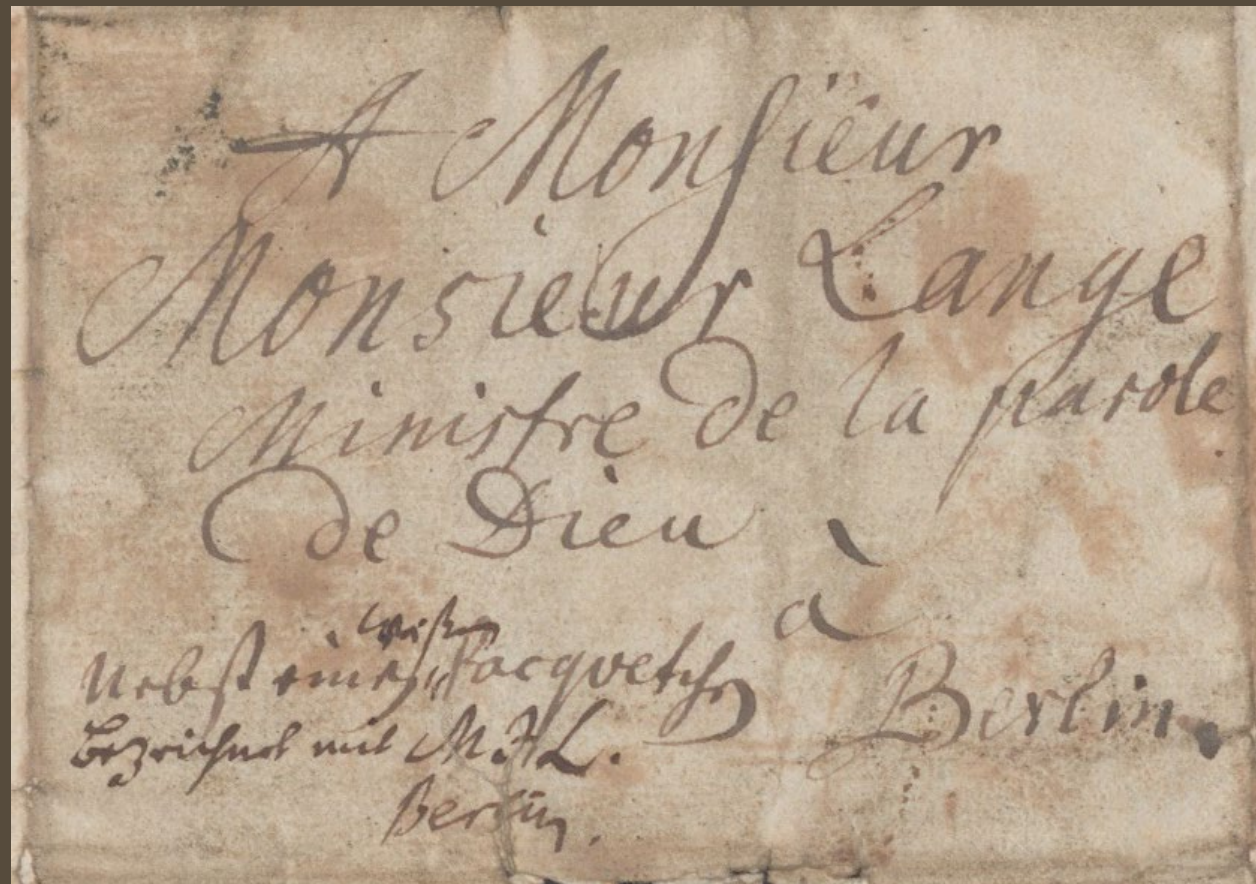 A Monsieur
Monsieur Lange
Ministre de la parole
de Dieu
à
Berlin.
Nebst einem Pacquetchen
bezeichnet mit M. J. L.
Berlin.